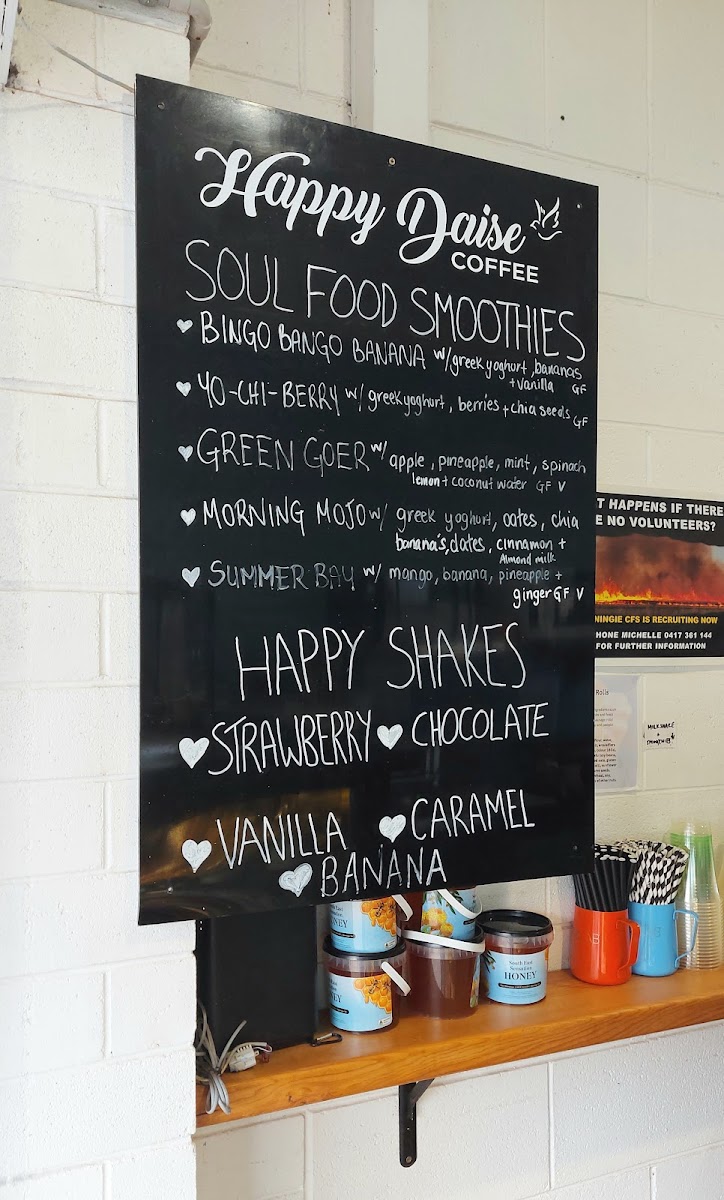 Happy Daise
COFFEE
SOUL FOOD SMOOTHIES
BINGO BANGO BANANA w/ greek yoghurt, bananas
+ vanilla GF
YO-CHI-BERRY w/ greek yoghurt, berries + chia seeds
GF
GREEN GOER w/ apple, pineapple, mint, spinach
lemon + coconut water GF V
MORNING MOJO w/ greek yoghurt, oates, chia
banana's, dates, cinnamon +
Almond milk
SUMMER BAY w/ mango, banana, pineapple +
ginger GF V
HAPPY SHAKES
STRAWBERRY CHOCOLATE
VANILLA CARAMEL
BANANA
T HAPPENS IF THERE
E NO VOLUNTEERS?
NINGIE CFS IS RECRUITING NOW
HONE MICHELLE 0417 361 144
FOR FURTHER INFORMATION
Rolls
MILKSHAKE
+
HONEY
HONEY
South East
Sensation
HONEY